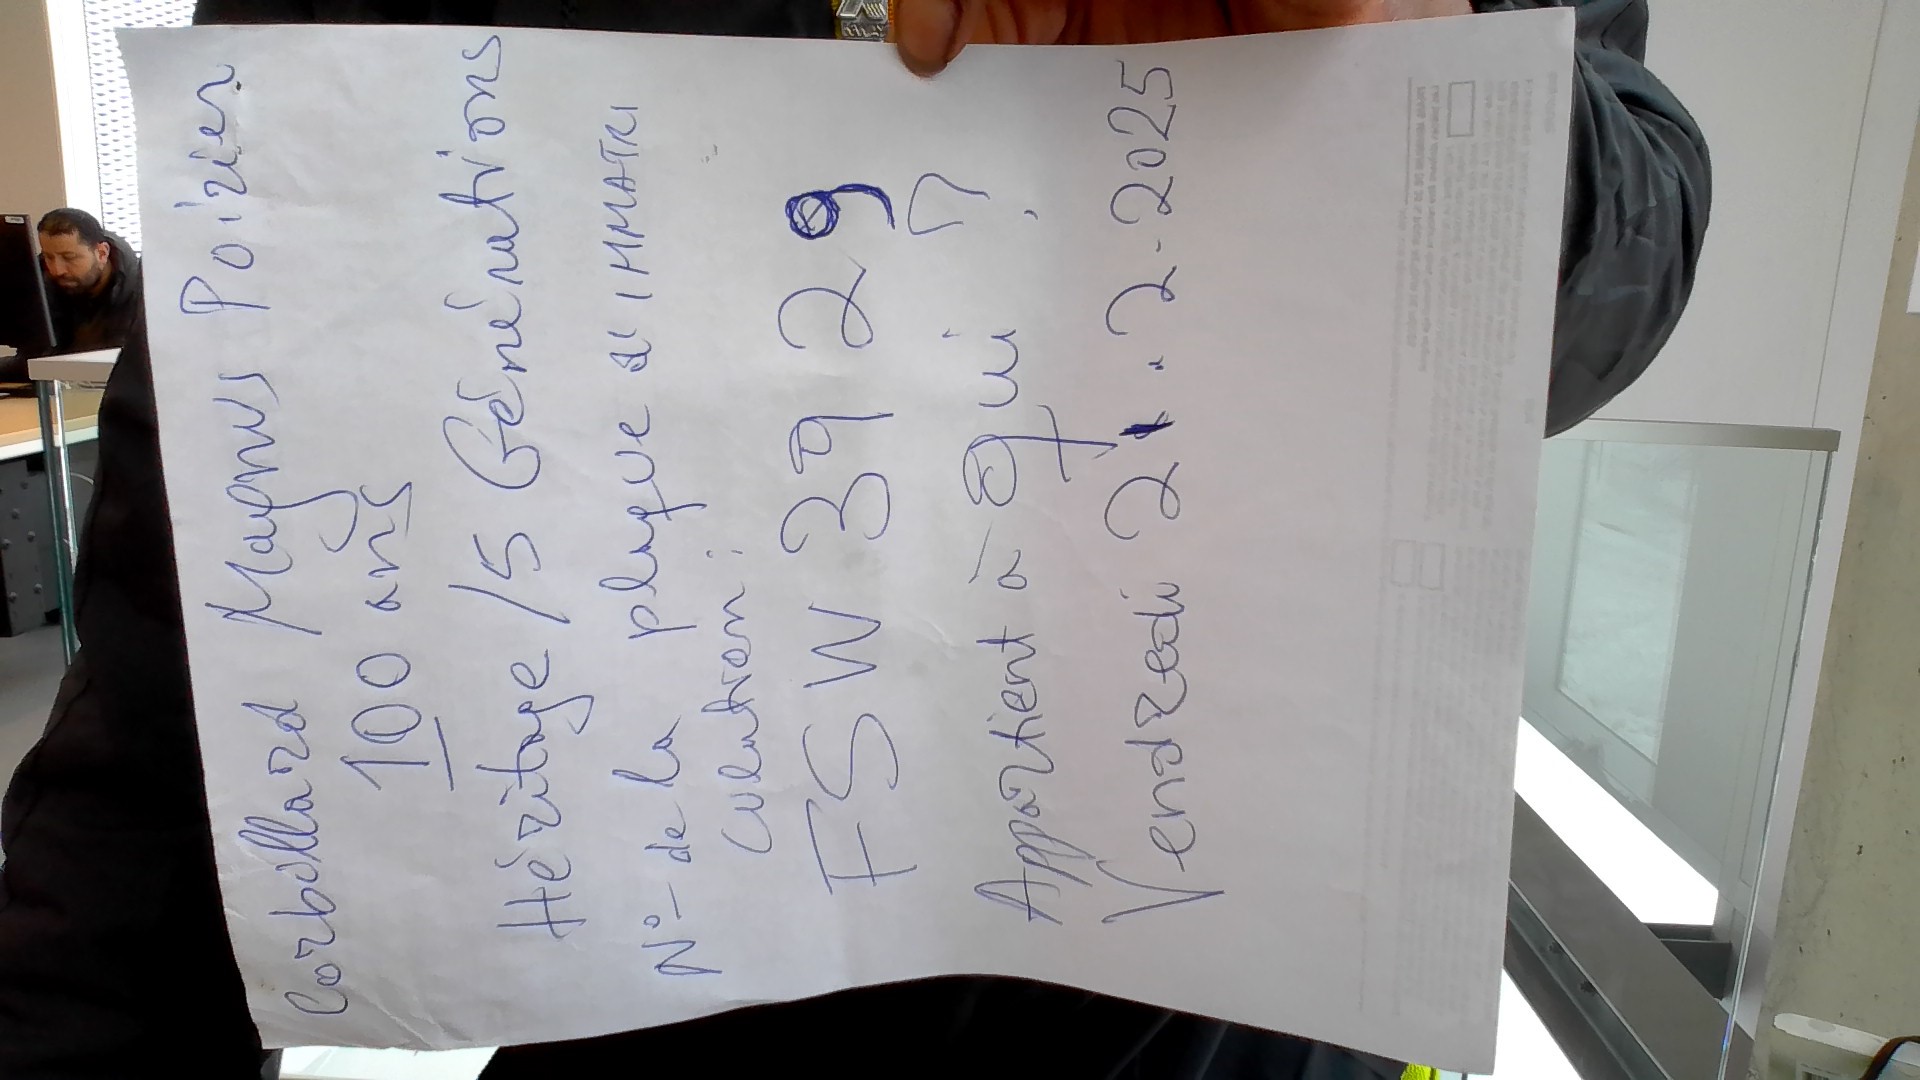 Corbillard Magnus Poirier
100 ans
Héritage / 5 Générations
N° - de la plaque d'IMMATRI
culation :
FSW 39 29
Appartient à qui ?
Vendredi 21.2-2025